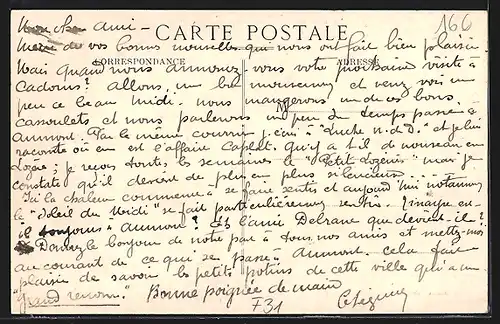 Mon cher ami - 166
CARTE POSTALE
Merci de vos bonnes nouvelles qui nous ont fait bien plaisir.
CORRESPONDANCE ADRESSE
Mais quand nous annoncez-vous votre prochaine visite à
? Allons, un bon et venez voir un
peu ce beau Midi. nous mangerons un de ces bons
cassoulets et nous parlerons un peu du temps passé à
Aumont. Par le même courrier j'écris à et je lui
raconte où en est l'affaire Caplat. Qu'y a-t-il de nouveau en
Lozère; je reçois toutes les semaines le "Petit Lozérien" mais je
constate qu'il devient de plus en plus silencieux.
Ici la chaleur commence à se faire sentir et aujourd'hui notamment
le "Soleil du Midi" se fait particulièrement sentir.
il toujours à Aumont? Et l'ami Delrane que devient-il?
Donnez le bonjour de notre part à tous nos amis et mettez-moi
au courant de ce qui se passe à Aumont. cela fait
plaisir de savoir les petits potins de cette ville qui a un
"grand renom." Bonne poignée de main
F31